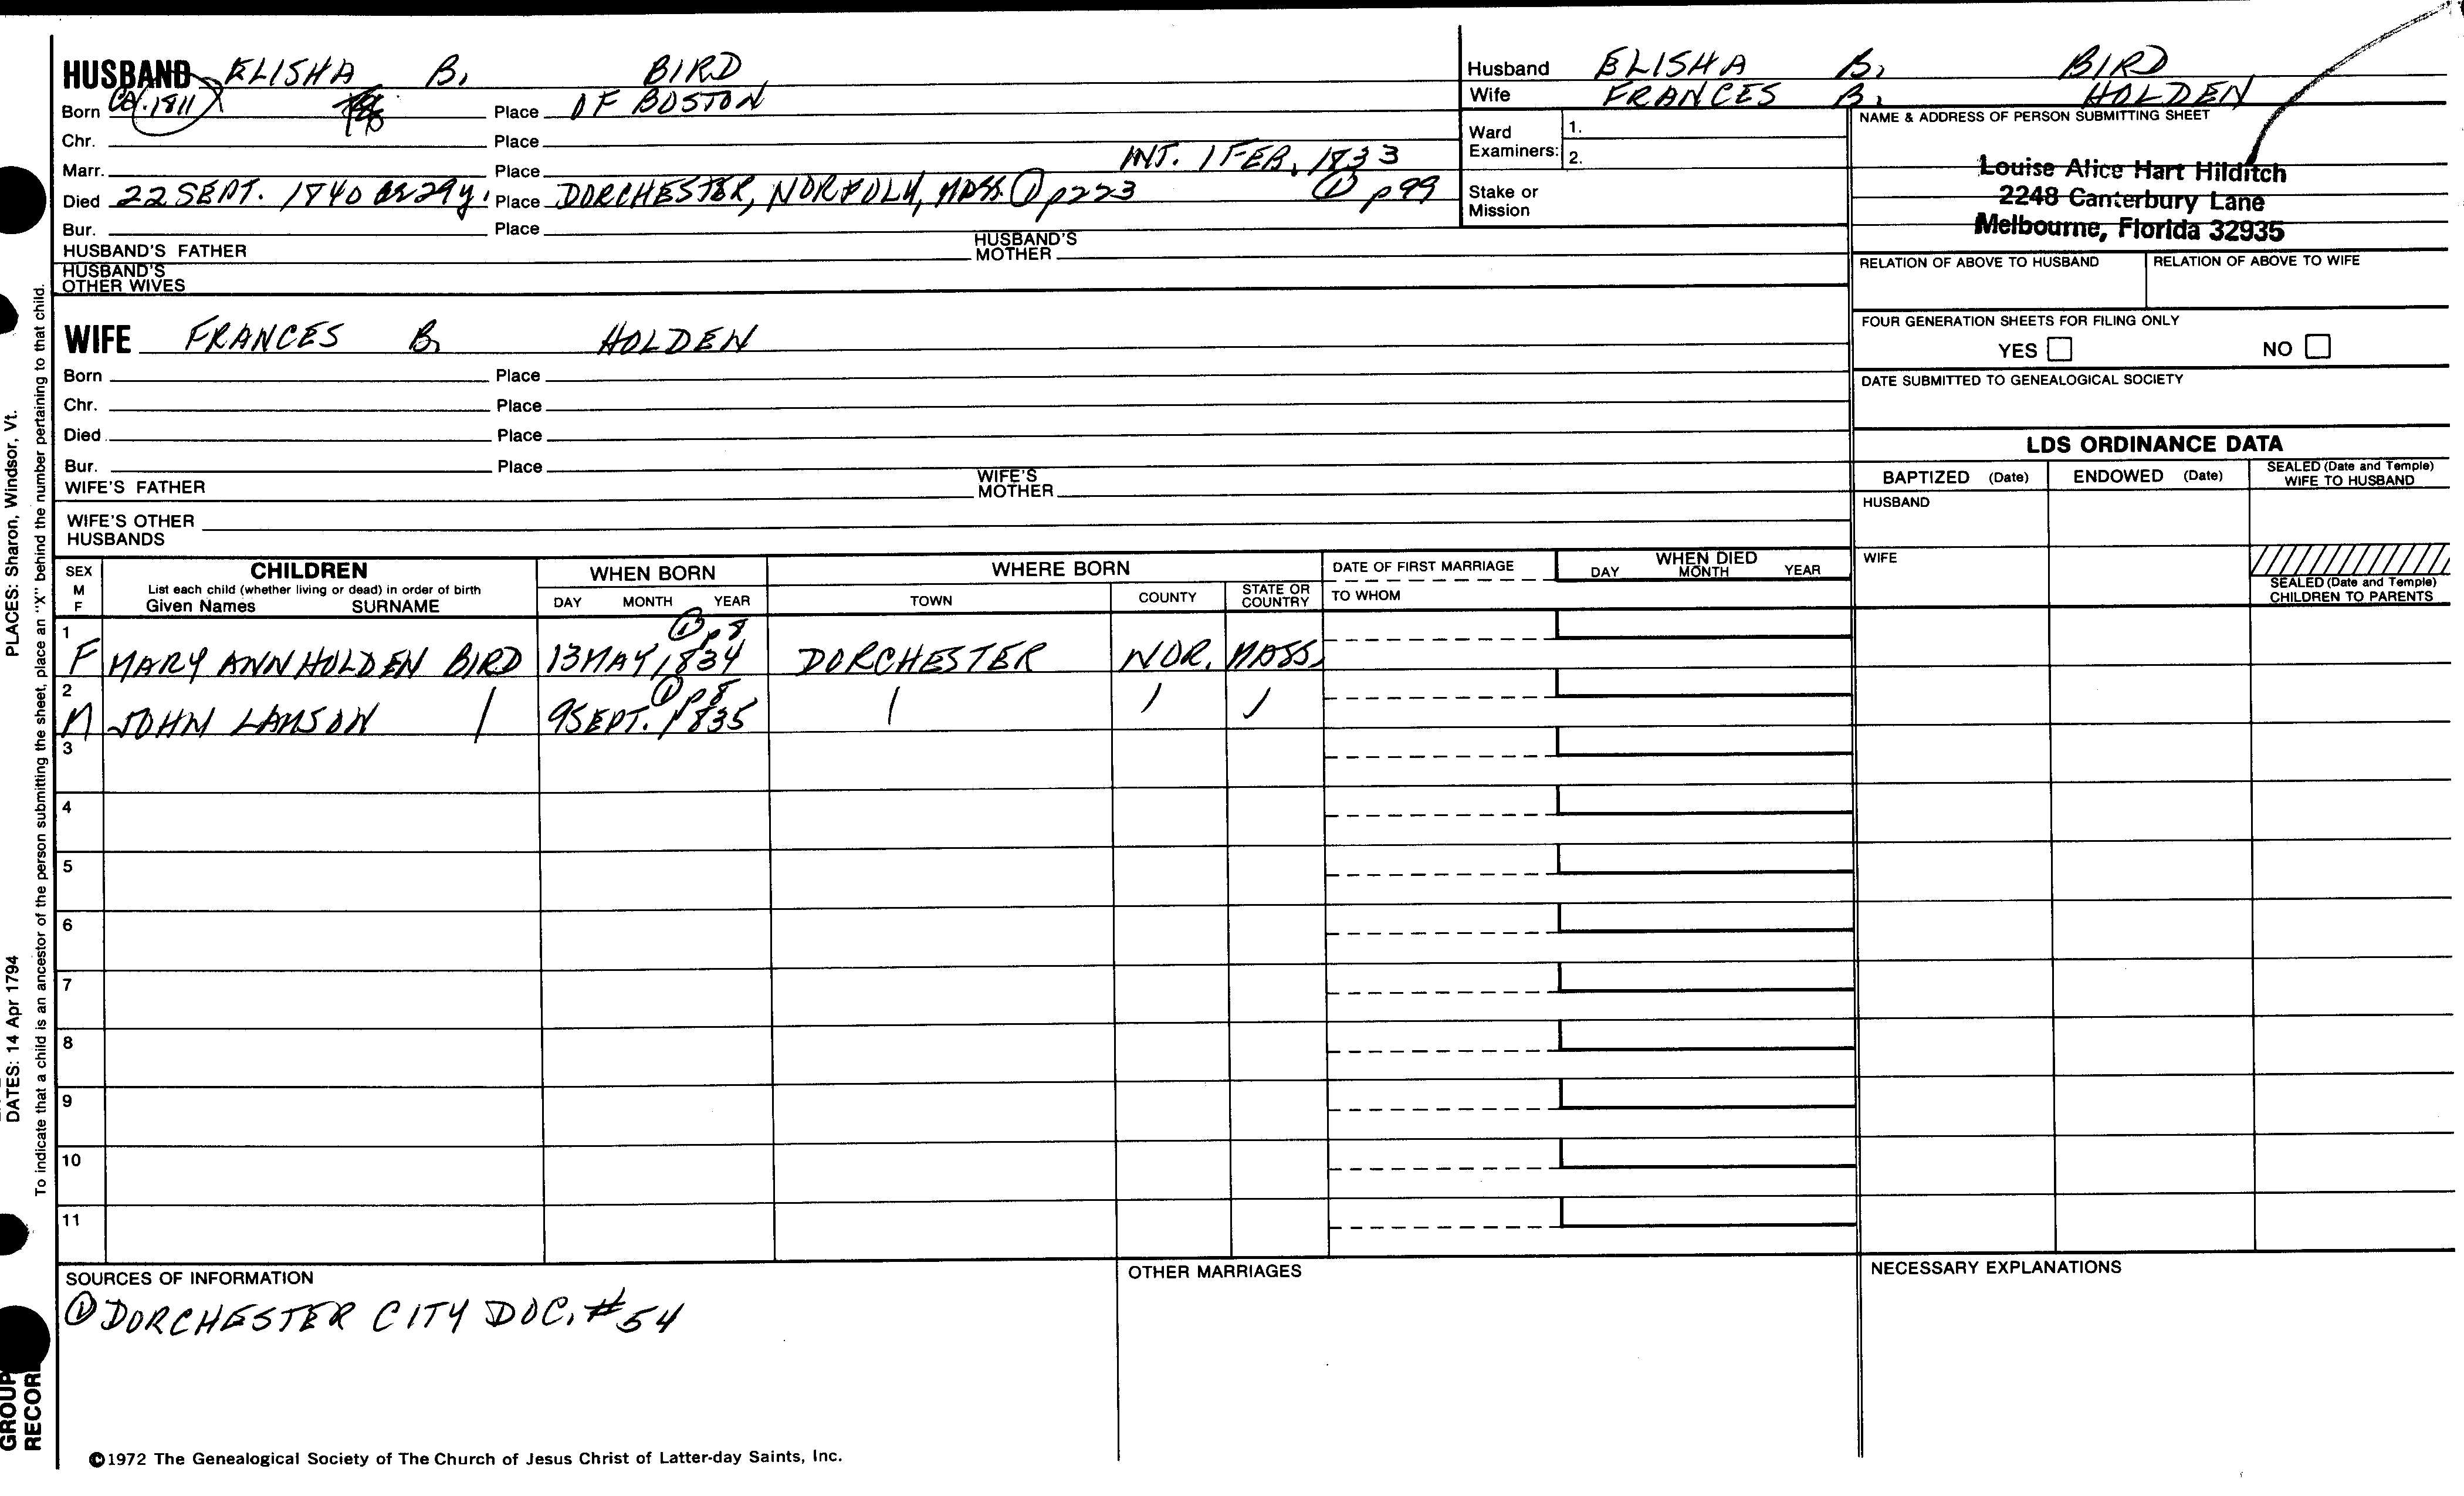 HUSBAND ELISHA B. BIRD
Born Ca. 1811 Place OF BOSTON
Chr. Place
Marr. Place INT. 1 FEB. 1833
① p99
Died 22 SEPT. 1840 ae 29y. Place DORCHESTER, NORFOLK, MASS. ① p223
Bur. Place
HUSBAND'S FATHER HUSBAND'S MOTHER
HUSBAND'S OTHER WIVES
WIFE FRANCES B. HOLDEN
Born Place
Chr. Place
Died Place
Bur. Place
WIFE'S FATHER WIFE'S MOTHER
WIFE'S OTHER HUSBANDS
Husband ELISHA B. BIRD
Wife FRANCES B. HOLDEN
Ward Examiners: 1.
2.
Stake or Mission
NAME & ADDRESS OF PERSON SUBMITTING SHEET
Louise Alice Hart Hilditch
2248 Canterbury Lane
Melbourne, Florida 32935
RELATION OF ABOVE TO HUSBAND RELATION OF ABOVE TO WIFE
FOUR GENERATION SHEETS FOR FILING ONLY
YES NO
DATE SUBMITTED TO GENEALOGICAL SOCIETY
LDS ORDINANCE DATA
BAPTIZED (Date) ENDOWED (Date) SEALED (Date and Temple) WIFE TO HUSBAND
HUSBAND
WIFE
SEALED (Date and Temple) CHILDREN TO PARENTS
SEX M F
CHILDREN
List each child (whether living or dead) in order of birth
Given Names SURNAME
WHEN BORN
DAY MONTH YEAR
WHERE BORN
TOWN COUNTY STATE OR COUNTRY
DATE OF FIRST MARRIAGE
TO WHOM
WHEN DIED
DAY MONTH YEAR
1 ① p8
F MARY ANN HOLDEN BIRD 13 MAY 1834 DORCHESTER NOR. MASS.
2 ① p8
M JOHN LAMSON / 9 SEPT. 1835 / / /
3
4
5
6
7
8
9
10
11
SOURCES OF INFORMATION
① DORCHESTER CITY DOC. #54
OTHER MARRIAGES
NECESSARY EXPLANATIONS
©1972 The Genealogical Society of The Church of Jesus Christ of Latter-day Saints, Inc.
PLACES: Sharon, Windsor, Vt.
DATES: 14 Apr 1794
To indicate that a child is an ancestor of the person submitting the sheet, place an "X" behind the number pertaining to that child.
GROUP
RECOR